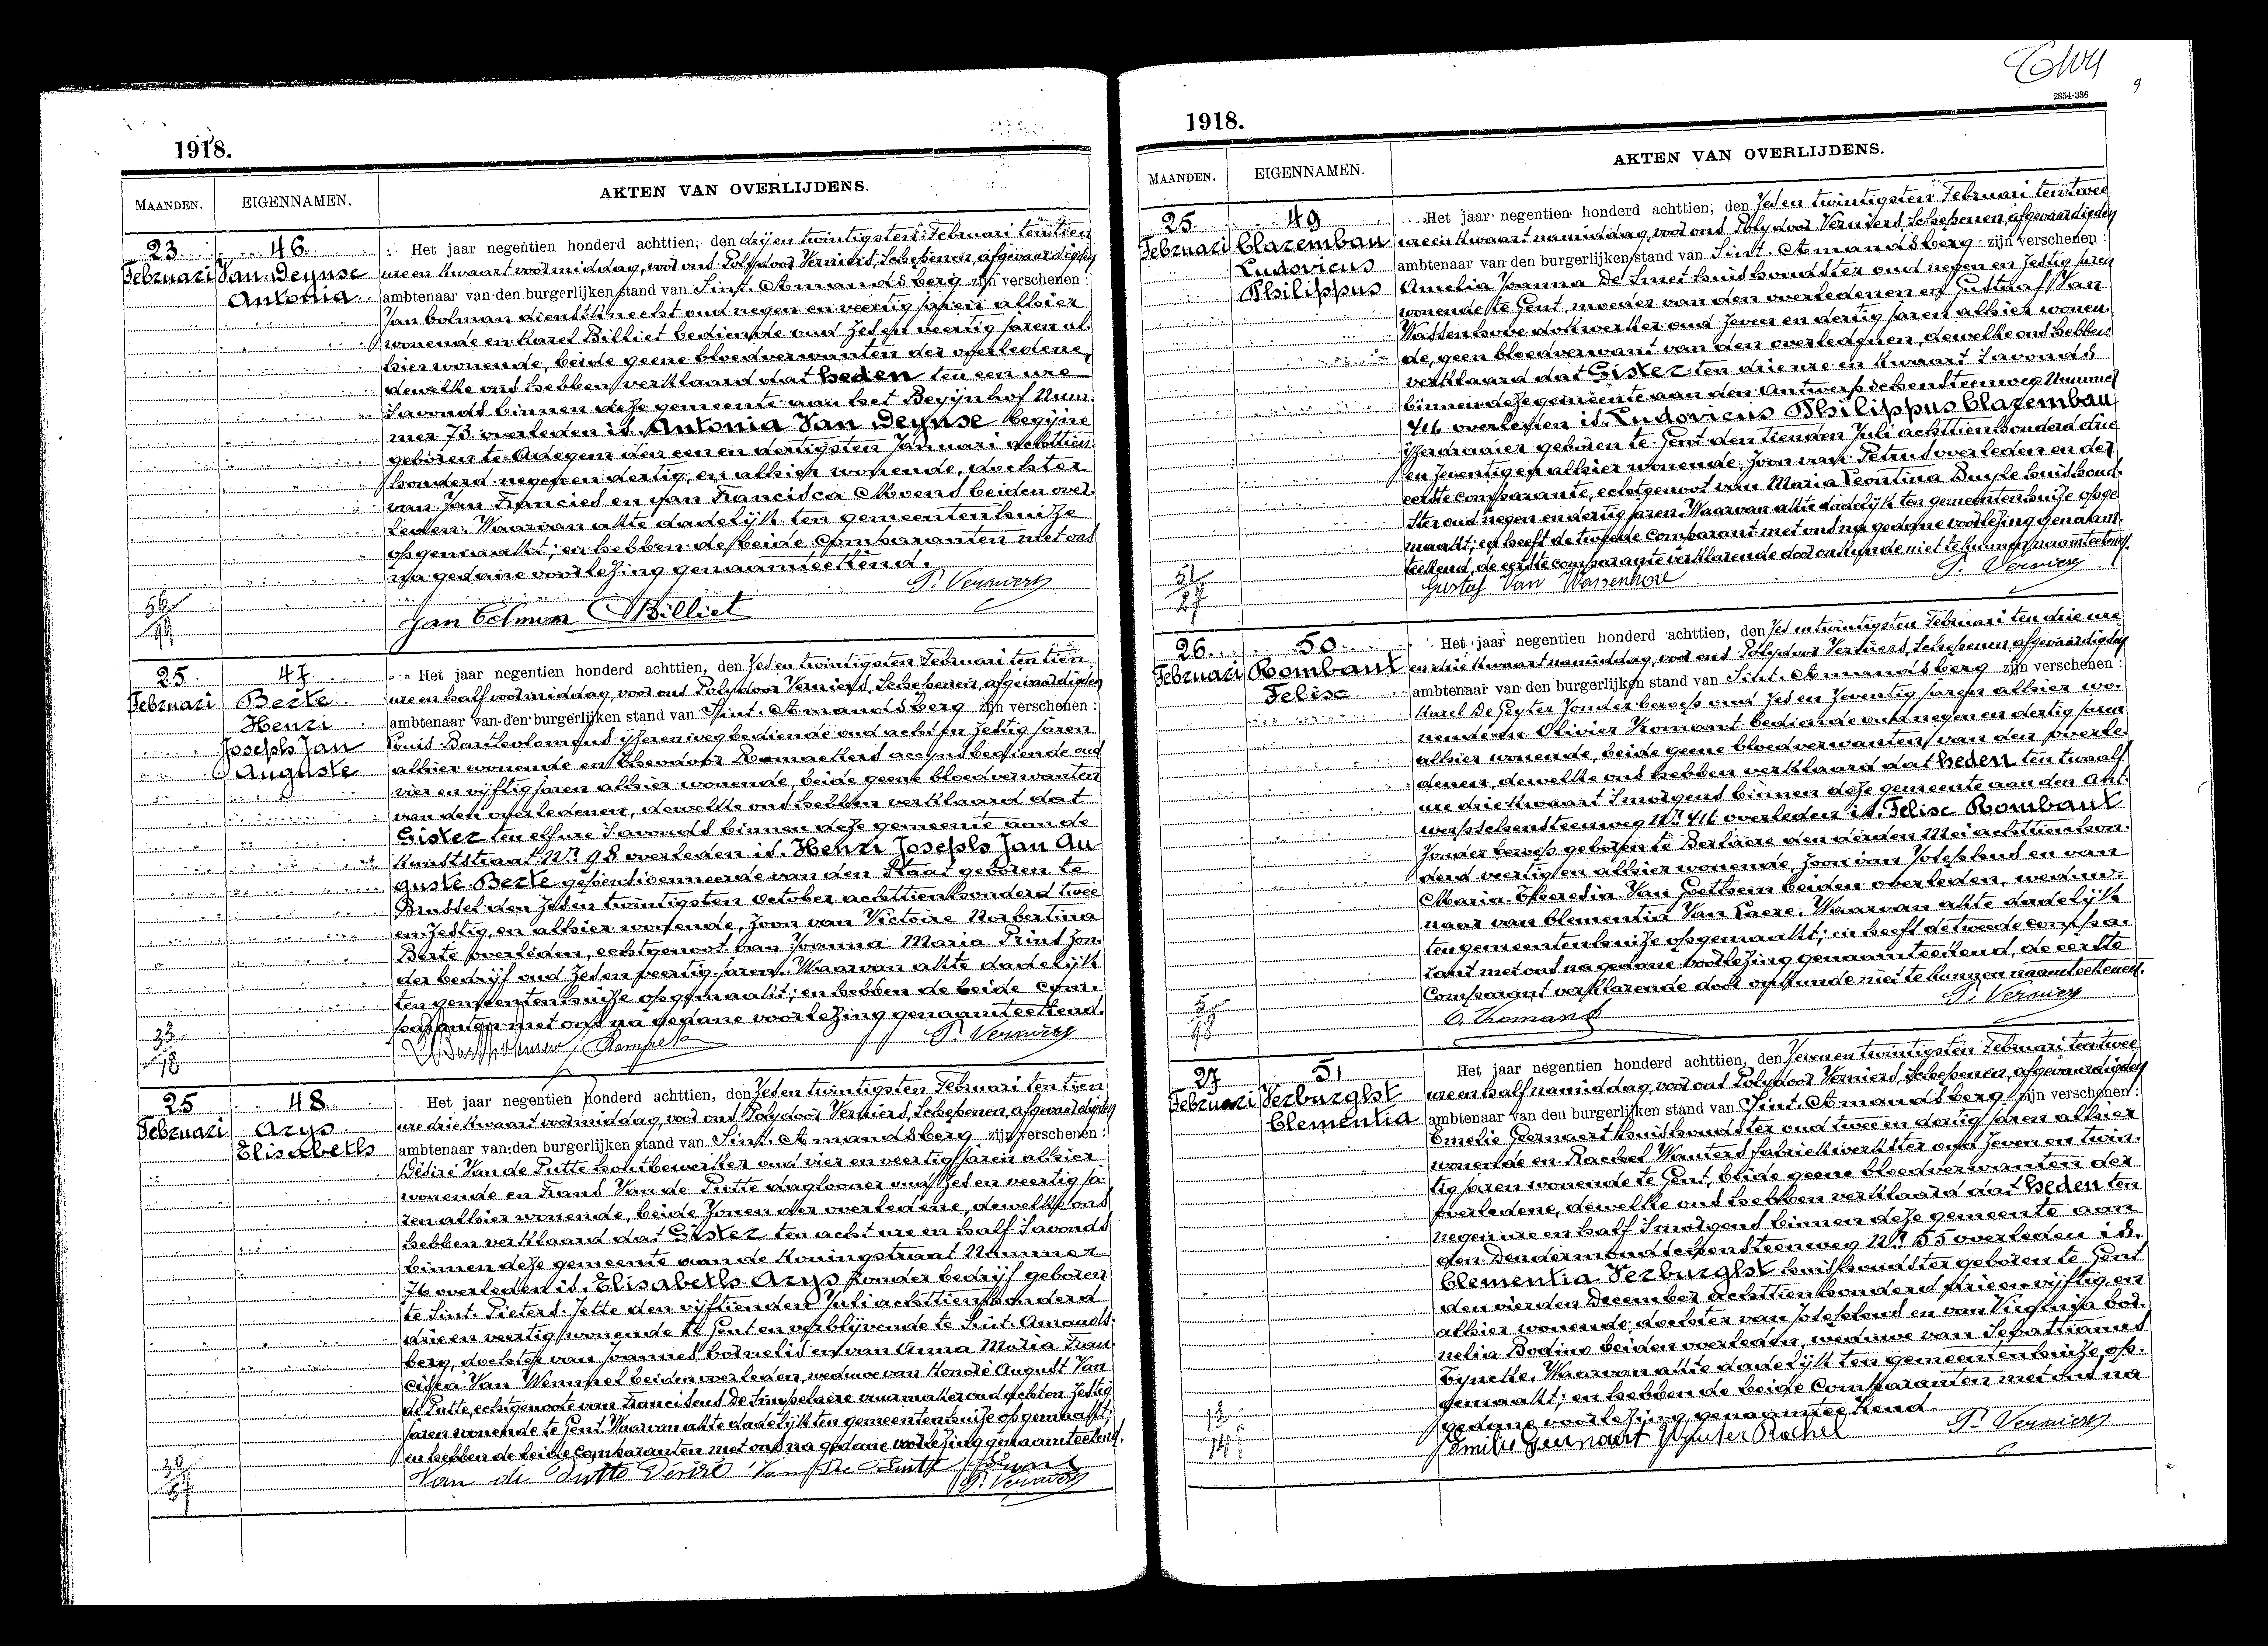 1918.
MAANDEN.
EIGENNAMEN.
AKTEN VAN OVERLIJDENS.
23
Februari
46
Van Deynse
Antonia
Het jaar negentien honderd achttien, den drij en twintigsten Februari ten tien
ure en kwaart voormiddag, voor ons Polydoor Verniers, Schepenen, afgevaardigden
ambtenaar van den burgerlijken stand van Sint. Amandsberg zijn verschenen :
Jan Colman dienstknecht oud negen en veertig jaren alhier
wonende en Karel Billiet bediende oud zes en veertig jaren al-
hier wonende, beide geene bloedverwanten der overledene,
dewelke ons hebben verklaard dat heden ten een ure
s'avonds binnen deze gemeente aan het Begijnhof Num
mer 73 overleden is. Antonia Van Deynse begijne
geboren te Adegem den een en dertigsten Januari achttien
honderd negen en dertig, en alhier wonende, dochter
van Jan Francies en van Francisca Moens beiden over-
leden. Waarvan akte dadelijk ten gemeentenhuize
opgemaakt; en hebben de beide Comparanten met ons
na gedane voorlezing genaamteekend.
Jan Colman Billiet P. Verniers
25
Februari
47
Berte
Henri
Joseph Jan
Auguste
Het jaar negentien honderd achttien, den zes en twintigsten Februari ten tien
ure en half voormiddag, voor ons Polydoor Verniers, Schepenen, afgevaardigden
ambtenaar van den burgerlijken stand van Sint. Amandsberg zijn verschenen :
Louis Bartholomeus ijzerenwegbediende oud acht en zestig jaren
alhier wonende en Theodoor accynsbediende oud
vier en vijftig jaren alhier wonende, beide geene bloedverwanten
van den overledenen, dewelke ons hebben verklaard dat
Gister ten elf ure s'avonds binnen deze gemeente aan de
Kunststraat Nr 98 overleden is. Henri Joseph Jan Au
guste Berte gepensionneerde van den Staat geboren te
Brussel den zes en twintigsten October achttienhonderd twee
en zestig, en alhier wonende, zoon van Victoire Norbertina
Berte overleden, echtgenoot van Joanna Maria Prins zon-
der bedrijf oud zes en veertig jaren. Waarvan akte dadelijk
ten gemeentenhuize opgemaakt; en hebben de beide Com-
paranten met ons na gedane voorlezing genaamteekend.
P. Verniers
25
Februari
48
Arys
Elisabeth
Het jaar negentien honderd achttien, den zes en twintigsten Februari ten tien
ure drie kwaart voormiddag, voor ons Polydoor Verniers, Schepenen, afgevaardigden
ambtenaar van den burgerlijken stand van Sint. Amandsberg zijn verschenen :
Désiré Van de Putte houtbewerker oud vier en veertig jaren alhier
wonende en Frans Van de Putte daglooner oud zes en veertig ja-
ren alhier wonende, beide zonen der overledene, dewelke ons
hebben verklaard dat Gister ten acht ure en half s'avonds
binnen deze gemeente aan de Koningstraat Nummer
76 overleden is. Elisabeth Arys zonder bedrijf geboren
te Sint. Pieters. Jette den vijftienden Juli achttienhonderd
drie en veertig, wonende te Gent en verblijvende te Sint. Amands-
berg, dochter van Joannes Cornelis en van Anna Maria Fran
cisca Van Wemmel beiden overleden, weduwe van Honoré August Van
de Putte, echtgenoote van Franciscus De Simpelaere vuurmaker oud acht en zestig
jaren wonende te Gent. Waarvan akte dadelijk ten gemeentenhuize opgemaakt;
en hebben de beide Comparanten met ons na gedane voorlezing genaamteekend.
Van de Putte Desiré Van De Putte Frans
P. Verniers
9
2854-336
1918.
MAANDEN.
EIGENNAMEN.
AKTEN VAN OVERLIJDENS.
25
Februari
49
Clazembau
Ludovicus
Philippus
Het jaar negentien honderd achttien, den zes en twintigsten Februari ten twee
ure en kwaart namiddag, voor ons Polydoor Verniers, Schepenen, afgevaardigden
ambtenaar van den burgerlijken stand van Sint. Amandsberg zijn verschenen :
Amelia Joanna De Smet huishoudster oud negen en zestig jaren
wonende te Gent, moeder van den overledenen en Gustaf Van
Wassenhove dokwerker oud zeven en dertig jaren alhier wonen-
de, geen bloedverwant van den overledenen, dewelke ons hebben
verklaard dat Gister ten drie ure en kwaart s'avonds
binnen deze gemeente aan den Antwerpschensteenweg Nummer
416 overleden is. Ludovicus Philippus Clazembau
ijzerdraaier geboren te Gent den tienden Juli achttienhonderd drie
en zeventig en alhier wonende, zoon van Petrus overleden en der
eerste comparante, echtgenoot van Maria Leontina Buyse huishoud-
ster oud negen en dertig jaren. Waarvan akte dadelijk ten gemeentenhuize opge-
maakt; en heeft de tweede Comparant met ons na gedane voorlezing genaam-
teekend, de eerste comparante verklarende door onkunde niet te kunnen naamteekenen.
Gustaf Van Wassenhove P. Verniers
26
Februari
50
Rombaut
Felise
Het jaar negentien honderd achttien, den zes en twintigsten Februari ten drie ure
en drie kwaart namiddag, voor ons Polydoor Verniers, Schepenen, afgevaardigden
ambtenaar van den burgerlijken stand van Sint. Amandsberg zijn verschenen :
Karel De Geyter zonder beroep oud zes en zeventig jaren alhier wo-
nende en Olivier Thomant bediende oud negen en dertig jaren
alhier wonende, beide geene bloedverwanten van den overle-
denen, dewelke ons hebben verklaard dat heden ten twaalf
ure drie kwaart s'morgens binnen deze gemeente aan den Ant-
werpschensteenweg Nr 416 overleden is. Felise Rombaut
zonder beroep geboren te Berlaere den derden Mei achttienhon-
derd veertig en alhier wonende, zoon van Josephus en van
Maria Theresia Van Goethem beiden overleden, weduw-
naar van Clementia Van Laere. Waarvan akte dadelijk
ten gemeentenhuize opgemaakt; en heeft de tweede compa-
rant met ons na gedane voorlezing genaamteekend, de eerste
Comparant verklarende door onkunde niet te kunnen naamteekenen.
O. Thomant P. Verniers
27
Februari
51
Verburght
Clementia
Het jaar negentien honderd achttien, den zeven en twintigsten Februari ten twee
ure en half namiddag, voor ons Polydoor Verniers, Schepenen, afgevaardigden
ambtenaar van den burgerlijken stand van Sint. Amandsberg zijn verschenen :
Emelie Geirnaert huishoudster oud twee en dertig jaren alhier
wonende en Rachel Wauters fabriekwerkster oud zeven en twin-
tig jaren wonende te Gent, beide geene bloedverwanten der
overledene, dewelke ons hebben verklaard dat heden ten
negen ure en half s'morgens binnen deze gemeente aan
den Dendermondschensteenweg Nr 155 overleden is.
Clementia Verburght huishoudster geboren te Gent
den vierden December achttienhonderd drie en vijftig en
alhier wonende, dochter van Josephus en van Virginia Cor-
nelia Bodins beiden overleden, weduwe van Sebastianus
Eynelle. Waarvan akte dadelijk ten gemeentenhuize op-
gemaakt; en hebben de beide Comparanten met ons na
gedane voorlezing genaamteekend.
Emilie Geirnaert Wauters Rachel P. Verniers